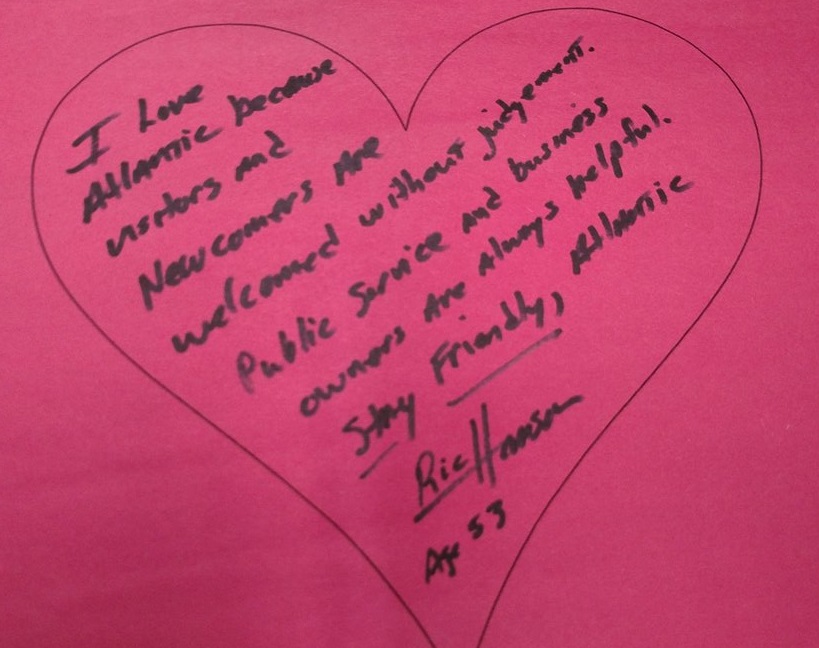 I Love
Atlantic because
visitors and
Newcomers Are
welcomed without judgement.
Public Service and business
owners Are Always helpful.
Stay Friendly, Atlantic
Ric Hanson
Age 53